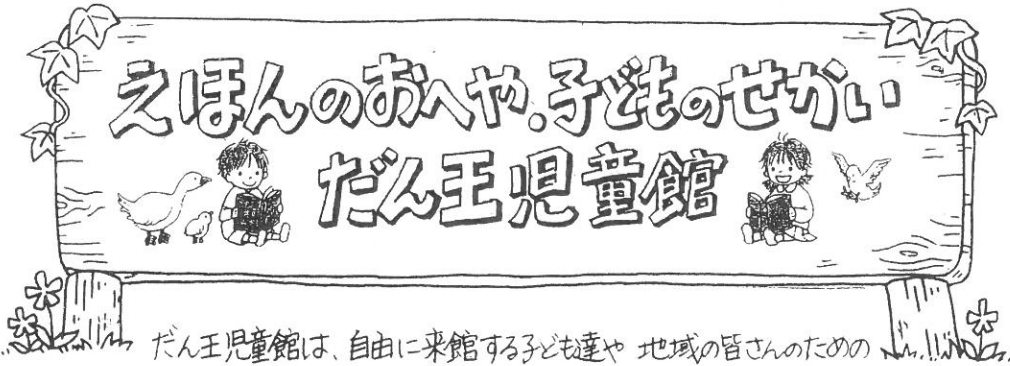 えほんのおへや.子どものせかい
だん王児童館
だん王児童館は、自由に来館する子ども達や 地域の皆さんのための